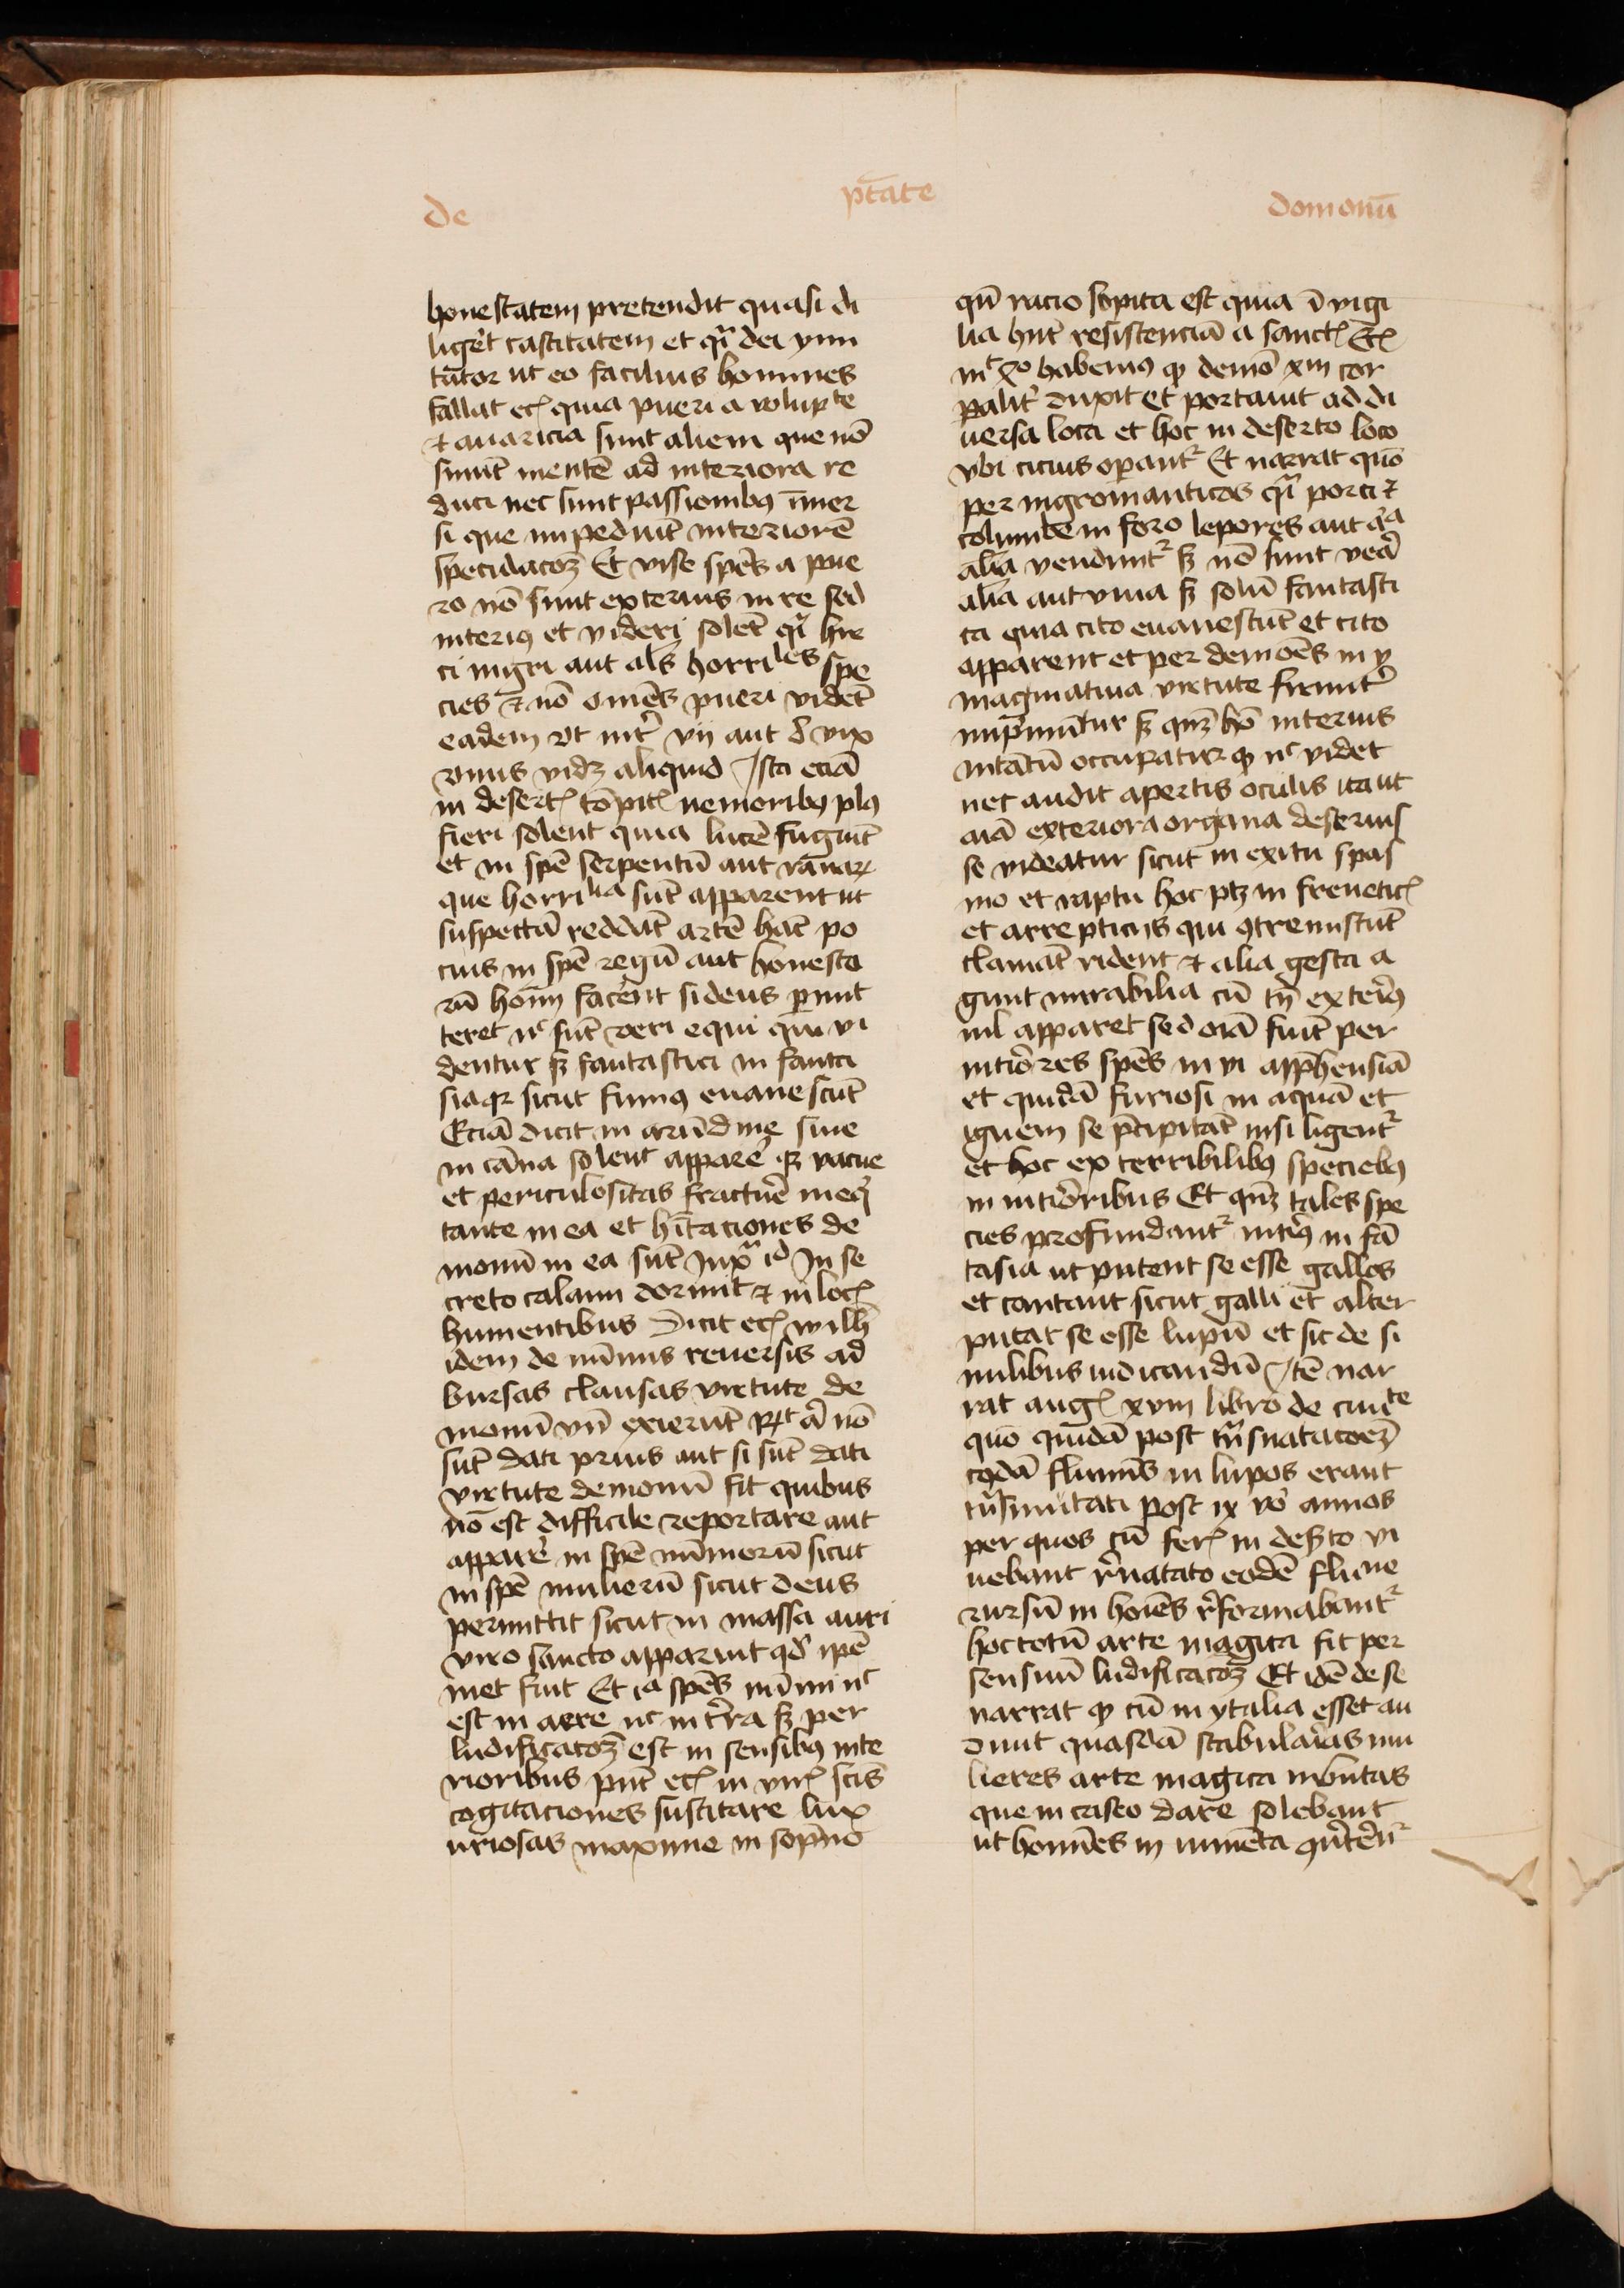 de ptāte domonū
honestatem pretendit quasi di
ligēt castitatem et qͥ dei ymi
tator ut eo facilius homines
fallat etꝭ quia pueri a volupte
⁊ auaricia sunt alieni que nō
sinūt mentē ad interiora re
duci nec sunt passionibꝫ īmer
si que impediūt interiorē
speculacoꝫ Et vise spēs a pue
ro nō sunt exterius in re sed
interiꝰ et videri solēt qͥ hir
ci nigri aut als̄ horriles spe
cies ⁊ nō omēs pueri vidēt
eadem vt int̄ vij aut d vix
vnus vidꝫ aliquid Ista eciā
in desertꝭ nemoribꝫ plꝰ
fieri solent quia lucē fugiūt
et in spē serpentū aut ranaꝝ
que horrilia sūt apparent ut
suspectā reddāt artē hāc po
cius in spē regū aut honesto
rū hoīm facēnt si deus ꝑmit
teret nͨ sūt veri equi qui vi
dentur sꝫ fantastici in fanta
siaqꝫ sicut fumꝰ euanescūt
Eciā dicit in arūdine siue
in cāna solent apparē qꝫ vacue
et periculositas fracturē
tante in ea et hītaciones de
monū in ea sūt iuxͣ id In se
creto calami dormit ⁊ in locꝭ
humentibus Dicit etꝭ wilh̄
idem de nūmis reuersis ad
bursas clausas virtute de
monū vn̄ exierūt Rͭ nō
sūt dati prius aut si sūt dati
virtute demonū fit quibus
nō est difficile reportare aut
apparē in spē nūmorū sicut
in spē mulierū sicut deus
permittit sicut in massa auri
viro sancto apparuit qd ipē
met fuit Et ia spēs nūmi nͨ
est in aere nͨ in t̄ra sꝫ per
ludificacoꝫ est in sensibꝫ inte
rioribus pn̄t etꝭ in virꝭ scīs
cogitaciones suscitare lux
uriosas maxime in sopno
qn̄ racio sopita est quia ī vigi
lia hn̄t resistenciā a sanctꝭ Etꝭ
habemꝰ ꝙ demō xm̄ cor
palit̄ duxit et portauit ad di
uersa loca et hoc in deserto loco
vbi cicius operant᷑ Et narrat quō
per nigromanticos qͥ porci ⁊
columbe in foro lepores aut
alia vendunt᷑ sꝫ nō sunt vera
alia aut viua sꝫ solū fantasti
ca quia cito euanescūt et cito
apparent et per demoēs in y
maginatiua virtute firmit̄
imprimūtur sꝫ qm̄ hō interius
intātū occupatur ꝙ nͨ videt
nec audit apertis oculis ita ut
aīā exteriora organa deseruis
se videatur sicut in exitu spas
mo et raptu hoc ptꝫ in freneticꝭ
et arrepticijs qui ꝯtremiscūt
clamāt rident ⁊ alia gesta a
gunt mirabilia cū tn̄ exterꝰ
nil apparet sed oīā fiūt per
intiores spēs in vi apphensiā
et quidā furiosi in aquā et
ignem se p̄cipitāt nisi ligent᷑
et hoc ex terribilibꝫ speciebꝫ
in intioribus Et qm̄ tales spe
cies profundant᷑ intꝰ in fā
tasia ut putent se esse gallos
et cantant sicut galli et̄ alter
putat se esse lupū et sic de si
milibus iudicandū Itē nar
rat augꝭ xviij libro de ciuite
quō quidā post tn̄snatacoēꝫ
cꝰdā fluminis in lupos erant
tn̄smutati post ix vo annos
per quos cū ferꝭ in deserto vi
uebant r̄natato eodē flumine
rursū in hoīes r̄formabant᷑
hoc totū arte magica fit per
sensuū ludificacoꝫ Et idē de se
narrat ꝙ cū in ytalia esset au
diuit quasdā stabularias mu
lieres arte magica inbutas
que in caseo dare solebant
ut homīes in iumēta ꝯuerterēt᷑